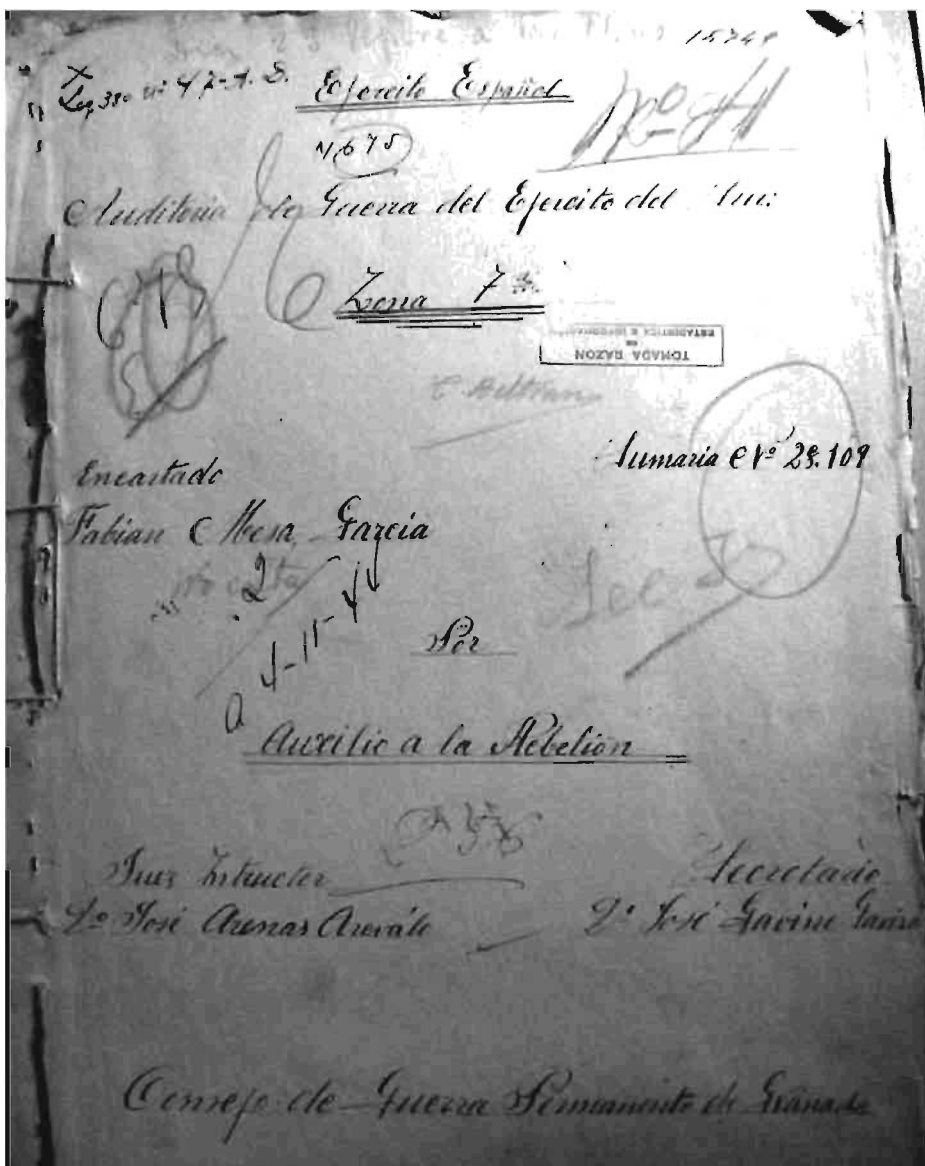 15749
Leg 380 nº 47-A.S.
Ejercito Español
Nº 41
4,675
Auditoria de Guerra del Ejercito del Sur:
Zona 7ª
TOMADA RAZON
EN
ESTADISTICA E INFORMACION
C Beltran
Sumaria Nº 29.109
Encartado
Fabian Mesa Garcia
2
a 4-11-4
Por
Auxilio a la Rebelión
Juez Istructor
Dº José Arenas Arevalo
Secretario
Dº José Gavira Gavira
Consejo de Guerra Permanente de Granada